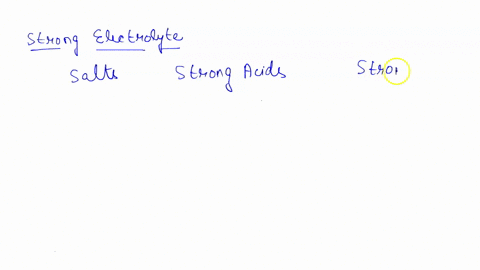 Strong Electrolyte
Salts Strong Acids Stron